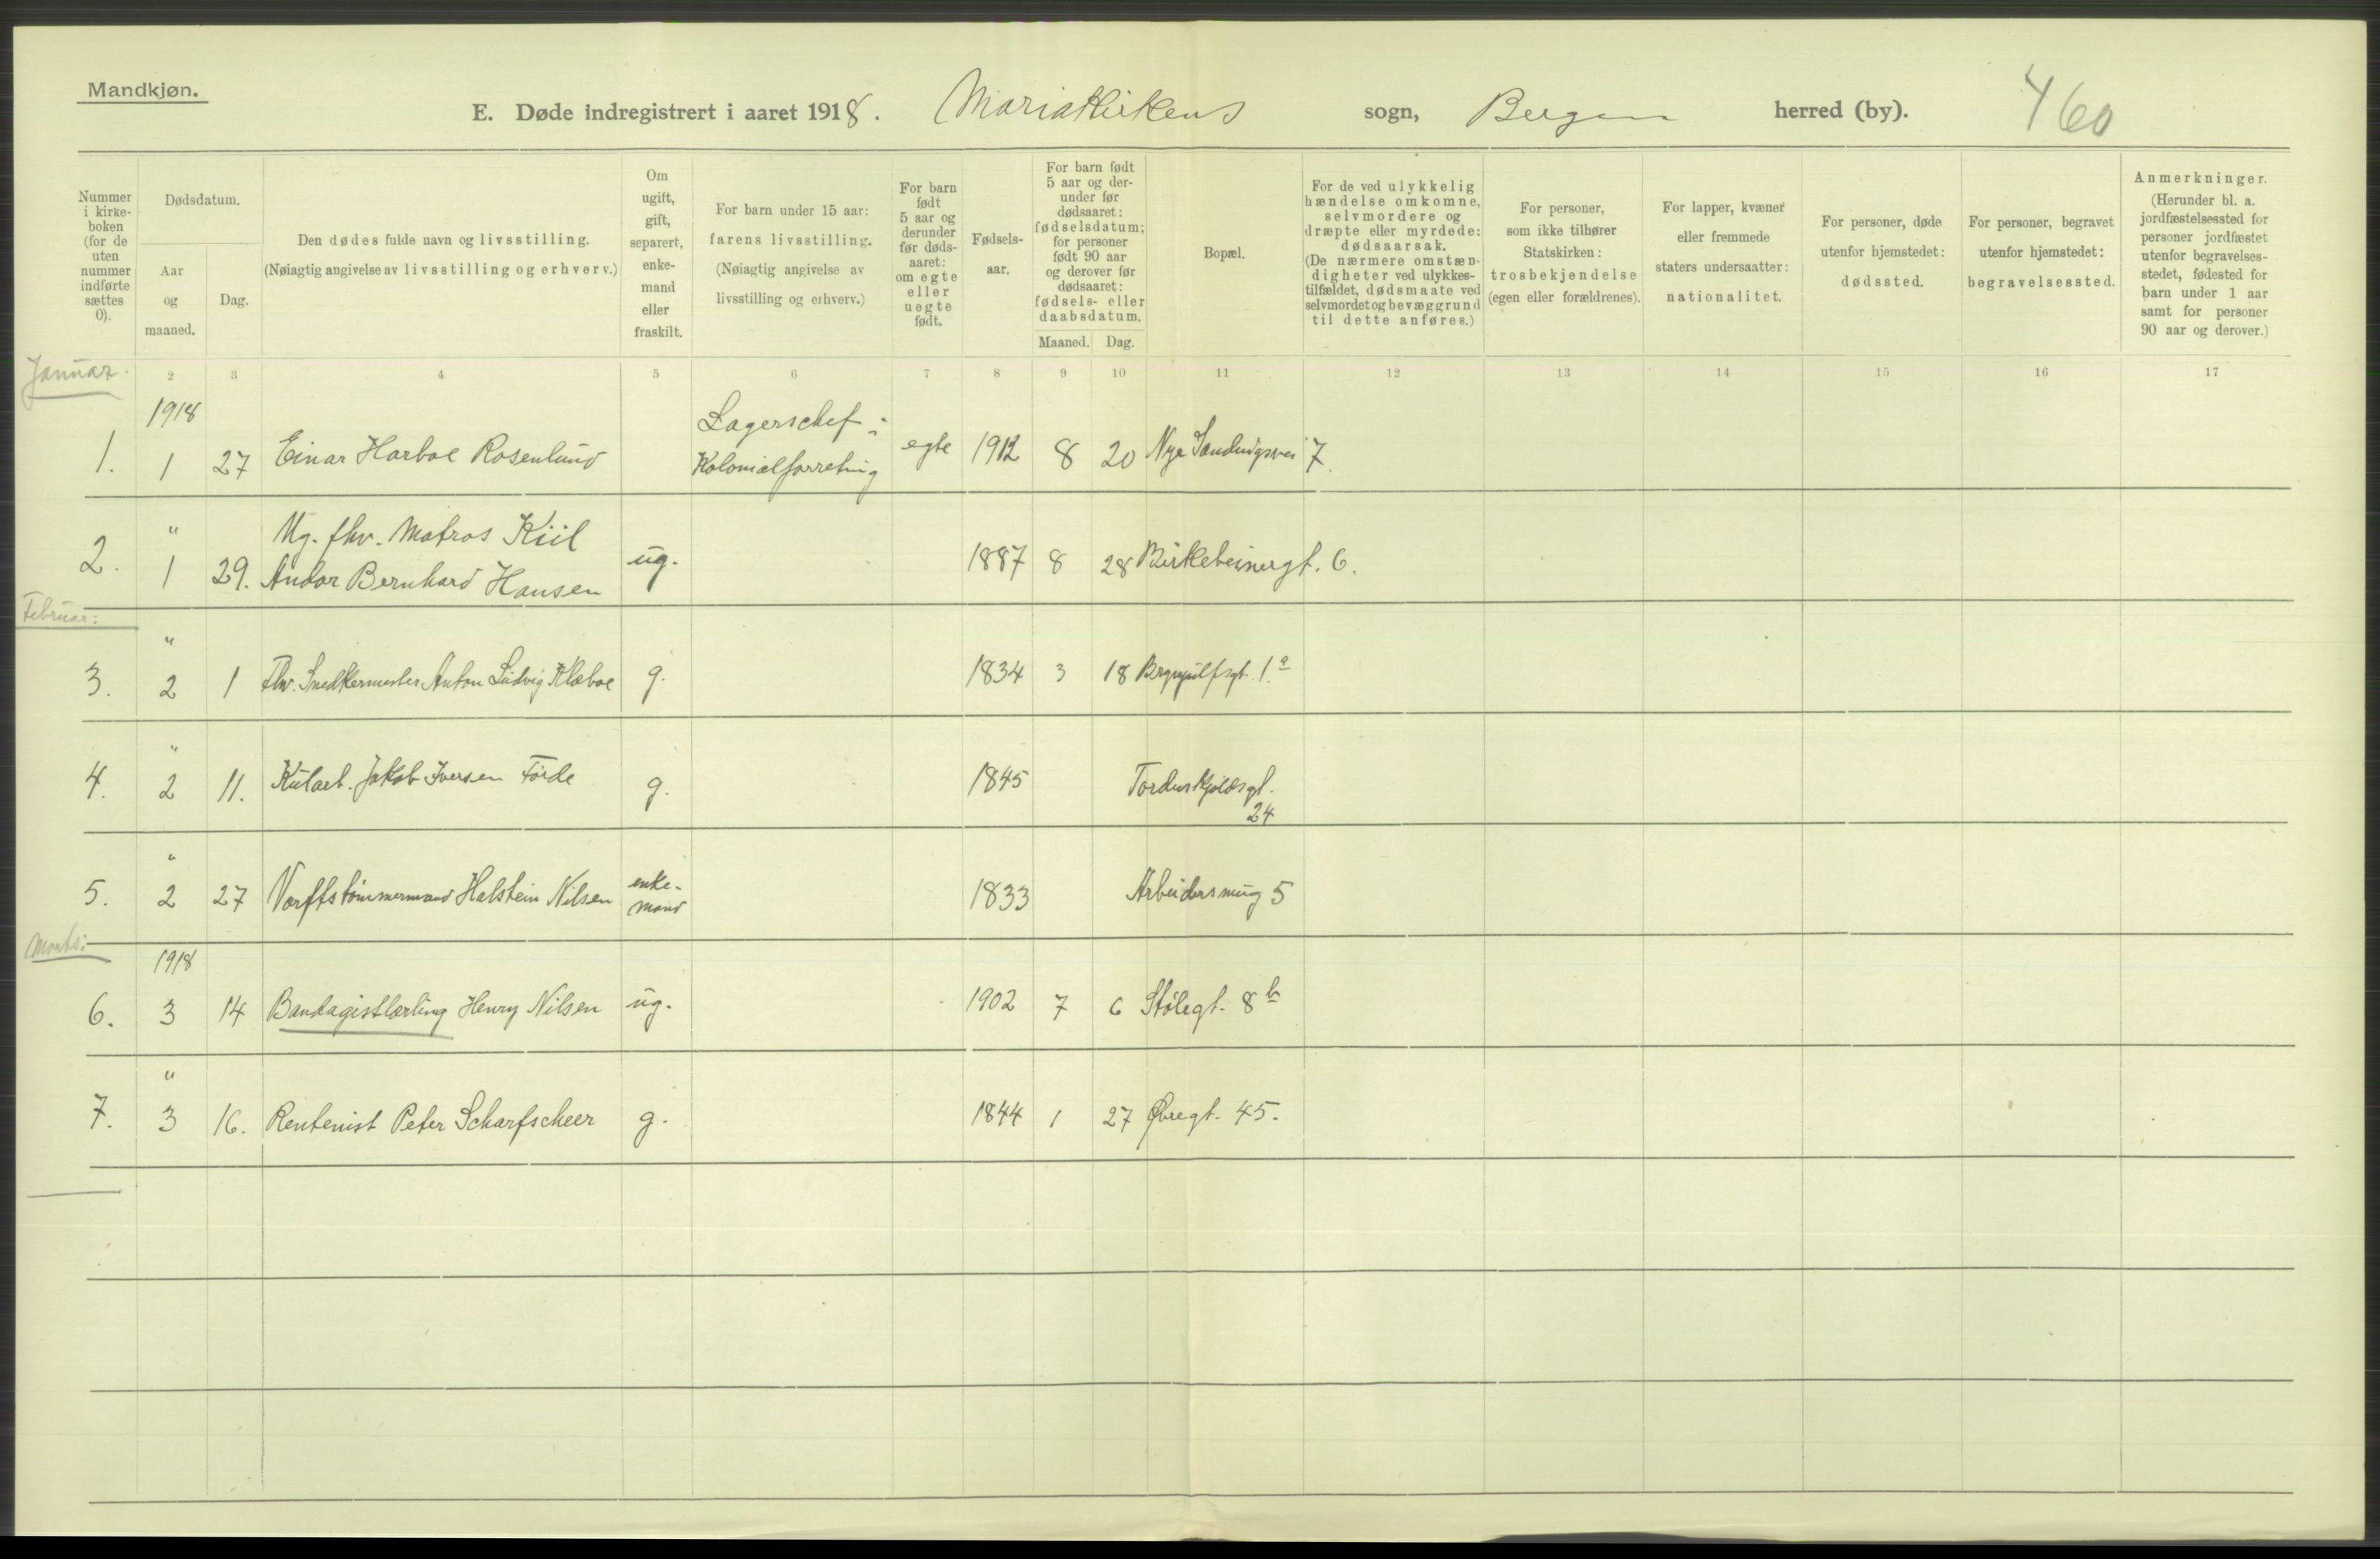 Mandkjøn.
E. Døde indregistrert i aaret 1918. Mariakirkens sogn, Bergen herred (by). 460
Nummer i kirke-boken (for de uten nummer indførte sættes 0).
Dødsdatum.
Aar og maaned.
Dag.
Den dødes fulde navn og livsstilling.
(Nøiagtig angivelse av livsstilling og erhverv.)
Om ugift, gift, separert, enke-mand eller fraskilt.
For barn under 15 aar:
farens livsstilling.
(Nøiagtig angivelse av
livsstilling og erhverv.)
For barn født 5 aar og derunder før døds-aaret: om egte eller uegte født.
Fødsels-aar.
For barn født 5 aar og der-under før dødsaaret: fødselsdatum; for personer født 90 aar og derover før dødsaaret: fødsels- eller daabsdatum.
Maaned. Dag.
Bopæl.
For de ved ulykkelig hændelse omkomne, selvmordere og dræpte eller myrdede: dødsaarsak.
(De nærmere omstæn-digheter ved ulykkes-tilfældet, dødsmaate ved selvmordet og bevæggrund til dette anføres.)
For personer, som ikke tilhører Statskirken: trosbekjendelse (egen eller forældrenes).
For lapper, kvæner eller fremmede staters undersaatter: nationalitet.
For personer, døde utenfor hjemstedet: dødssted.
For personer, begravet utenfor hjemstedet: begravelsessted.
Anmerkninger.
(Herunder bl. a. jordfæstelsessted for personer jordfæstet utenfor begravelses-stedet, fødested for barn under 1 aar samt for personer 90 aar og derover.)
Januar.
2 3 4 5 6 7 8 9 10 11 12 13 14 15 16 17
1918 Lagerschef i
1. 1 27 Einar Harboe Rosenlund Kolonialforretning egte 1912 8 20 Nye Sandvigsvei 7.
" Ug. fhv. Matros Kiil
2. 1 29. Andor Bernhard Hansen ug. 1887 8 28 Birkebeinergt. 6.
Februar:
"
3. 2 1 Fhv. Snedkermester Anton Ludvig Klæboe g. 1834 3 18 Brynjulfsgt. 1.a
"
4. 2 11. Kularb. Jakob Iversen Förde g. 1845 Tordenskjoldsgt.
24
"
5. 2 27 Værftstömmermand Halstein Nilsen enke-mand 1833 Arbeidersmug 5
Marts:
1918
6. 3 14 Bandagistlærling Henry Nilsen ug. 1902 7 6 Stölegt. 8b
"
7. 3 16. Rentenist Peter Scharfscheer g. 1844 1 27 Øvregt. 45.